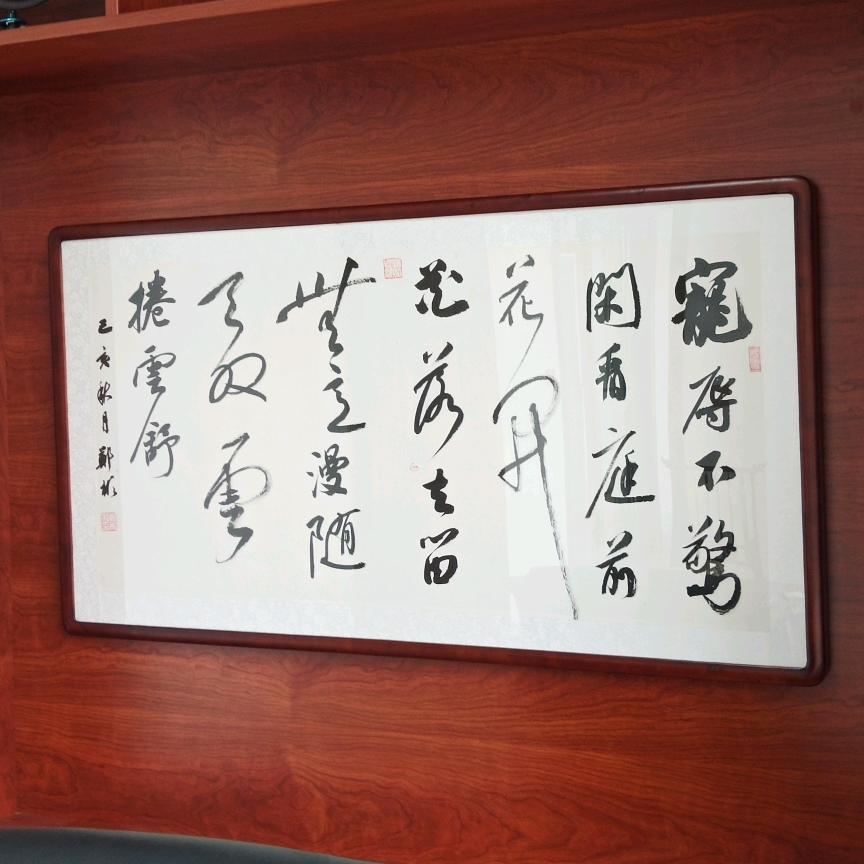 寵辱不驚
閑看庭前
花開
花落去留
無意漫随
天外雲
捲雲舒
己亥秋月鄭彬